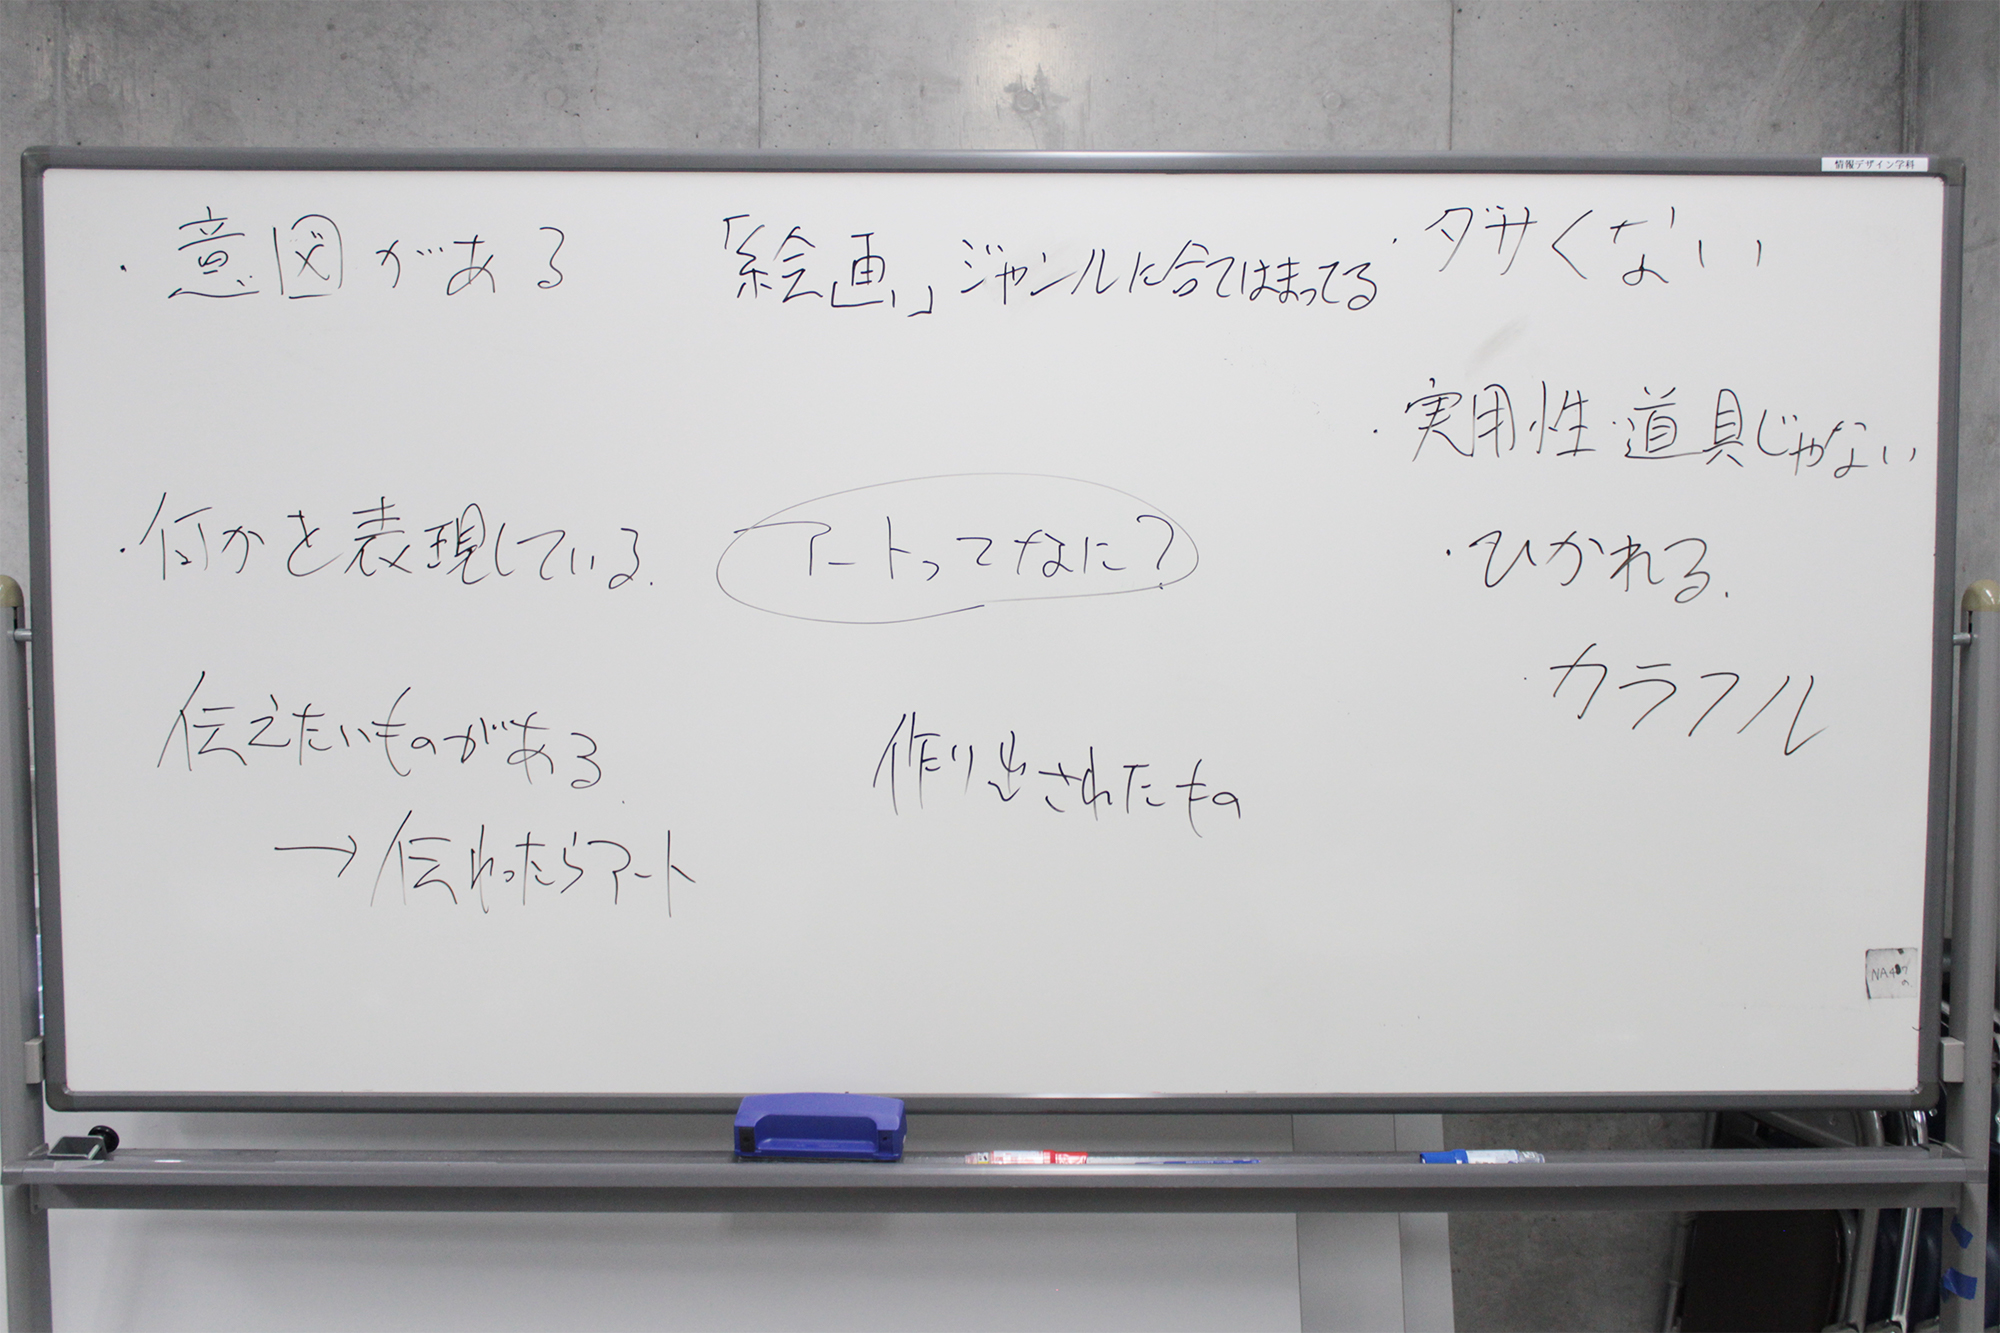 情報デザイン学科
・意図がある
「絵画」ジャンルに合てはまってる
・ダサくない
・実用性・道具じゃない
・何かを表現している.
アートってなに?
・ひかれる.
・カラフル
伝えたいものがある.
→伝わったらアート
作り出されたもの